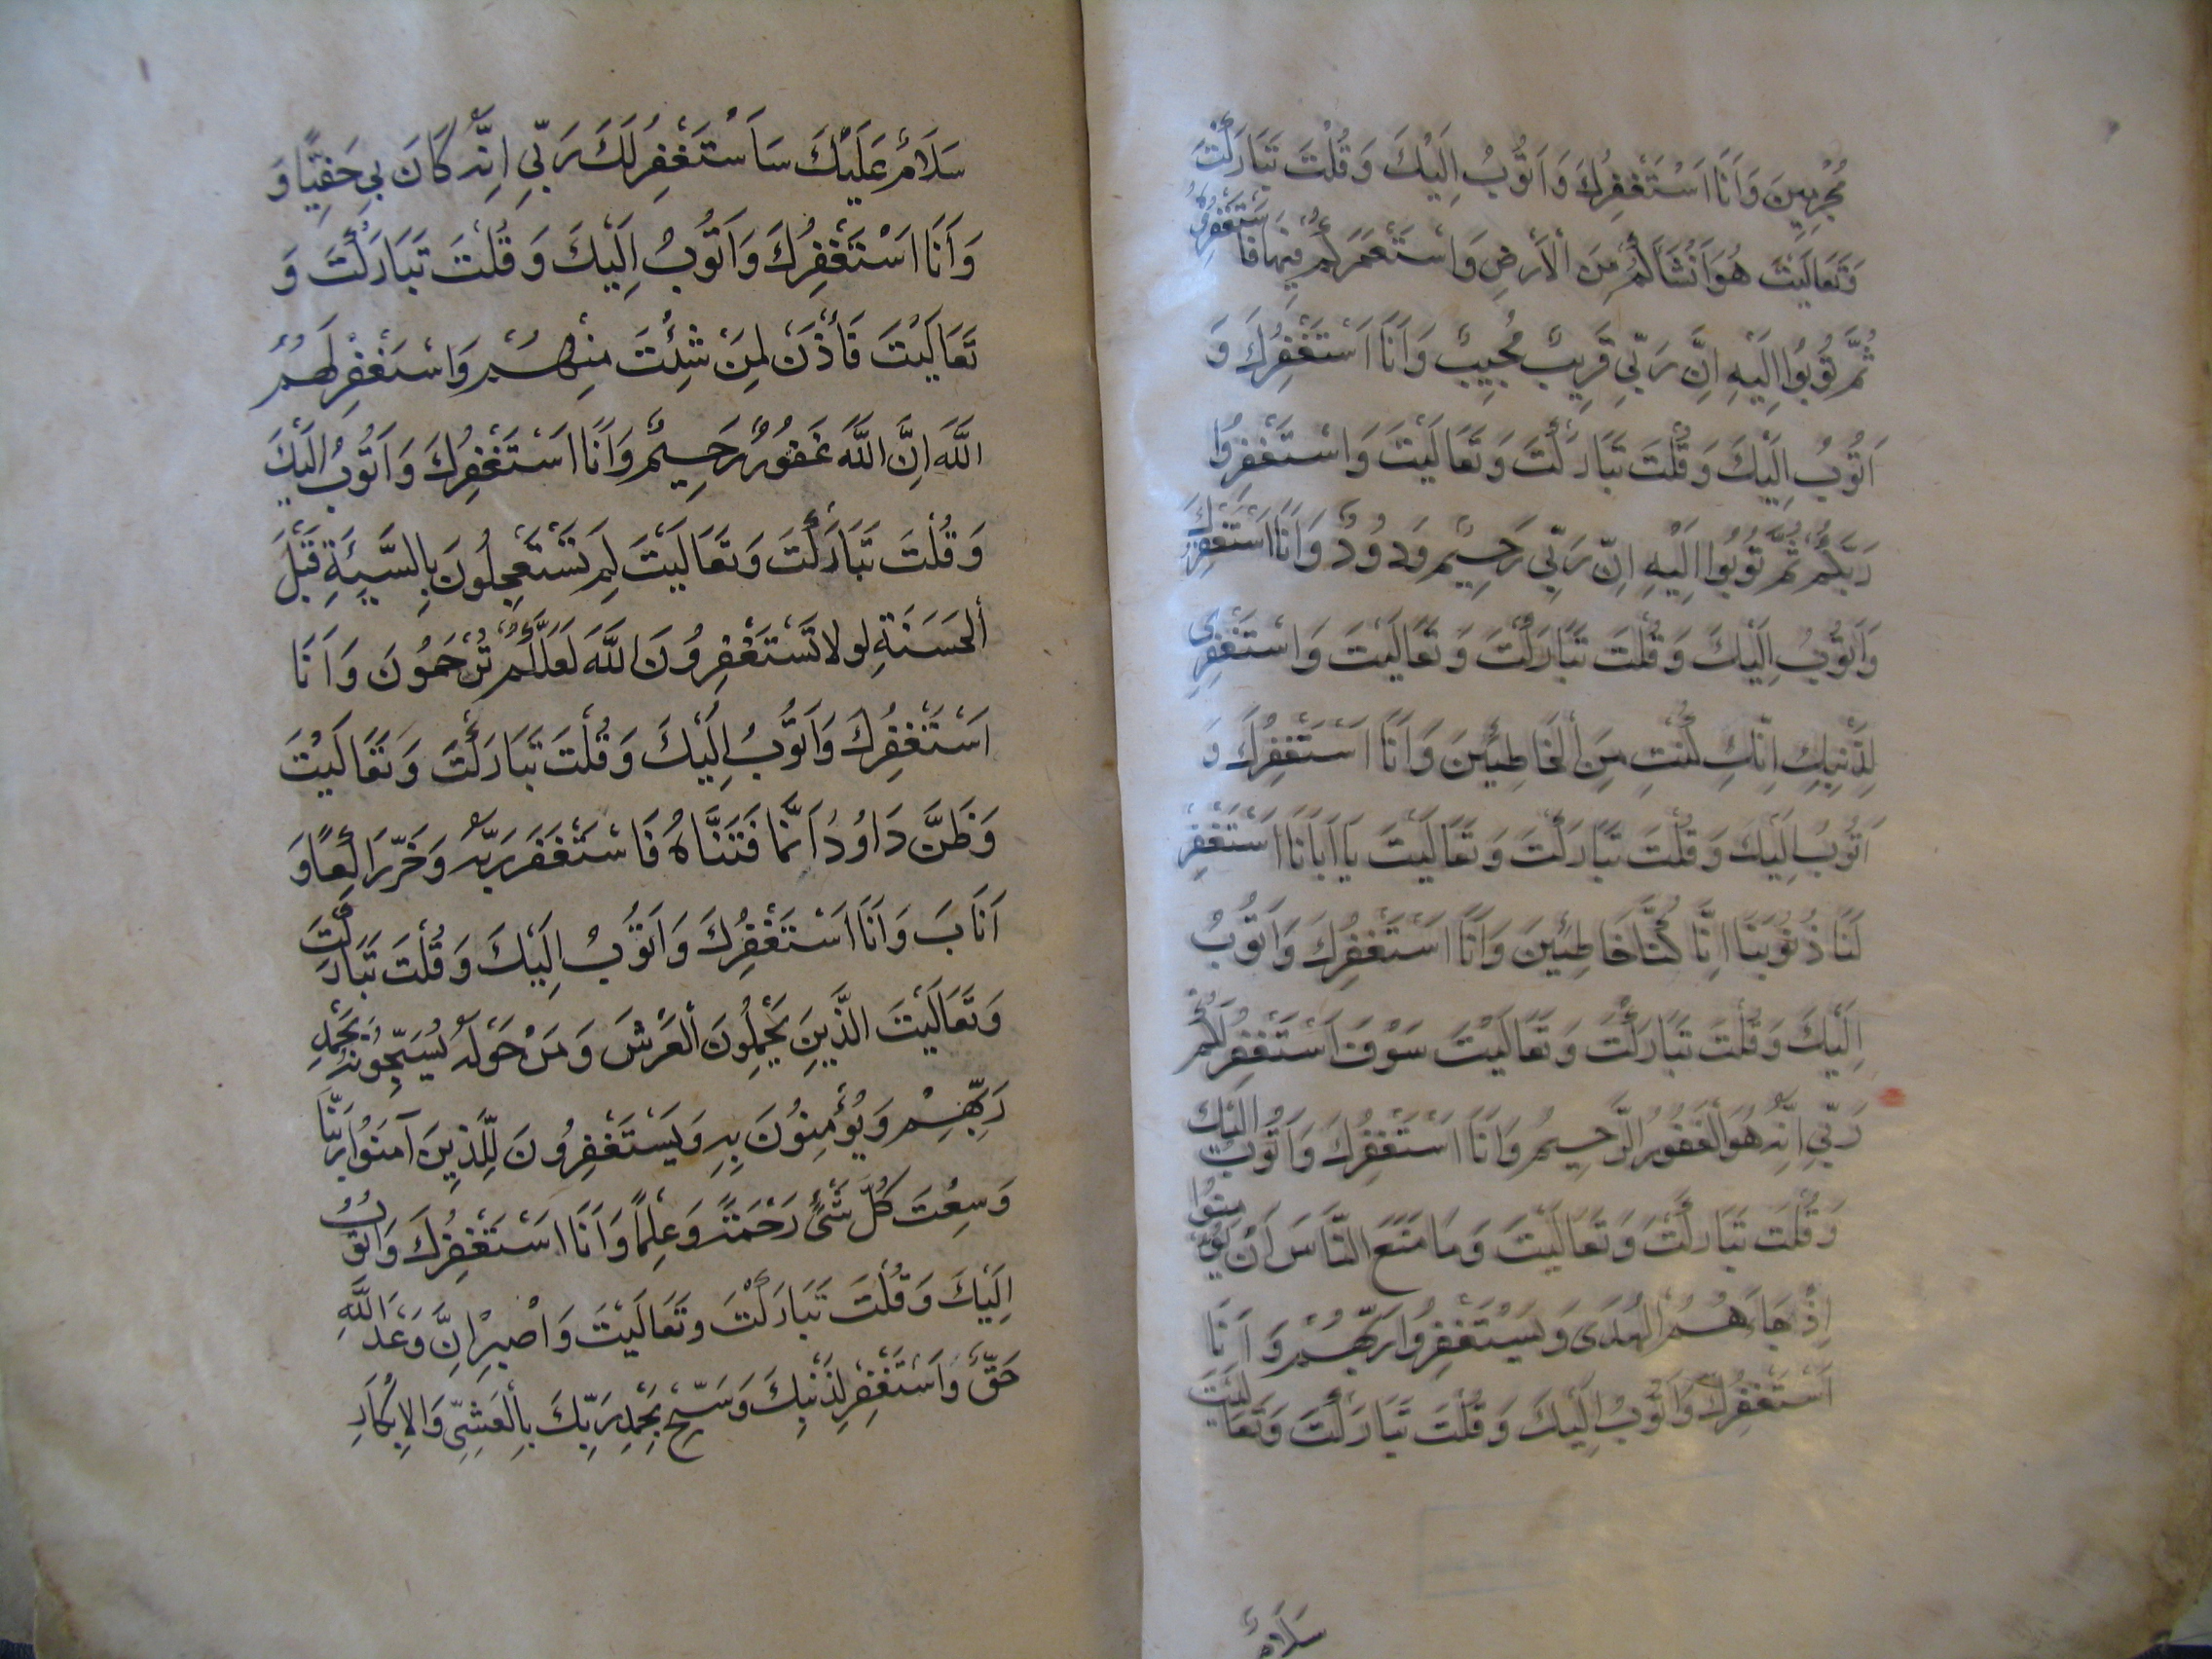 مُجْرِمِينَ وَاَنَا اَسْتَغْفِرُكَ وَاَتُوبُ اِلَيْكَ وَقُلْتَ تَبَارَكْتَ
وَتَعَالَيْتَ هُوَ اَنْشَاَكُمْ مِنَ الْاَرْضِ وَاسْتَعْمَرَكُمْ فِيهَا فَاسْتَغْفِرُوهُ
ثُمَّ تُوبُوا اِلَيْهِ اِنَّ رَبِّي قَرِيبٌ مُجِيبٌ وَاَنَا اَسْتَغْفِرُكَ وَ
اَتُوبُ اِلَيْكَ وَقُلْتَ تَبَارَكْتَ وَتَعَالَيْتَ وَاسْتَغْفِرُوا
رَبَّكُمْ ثُمَّ تُوبُوا اِلَيْهِ اِنَّ رَبِّي رَحِيمٌ وَدُودٌ وَاَنَا اَسْتَغْفِرُكَ
وَاَتُوبُ اِلَيْكَ وَقُلْتَ تَبَارَكْتَ وَتَعَالَيْتَ وَاسْتَغْفِرِي
لِذَنْبِكِ اِنَّكِ كُنْتِ مِنَ الْخَاطِئِينَ وَاَنَا اَسْتَغْفِرُكَ وَ
اَتُوبُ اِلَيْكَ وَقُلْتَ تَبَارَكْتَ وَتَعَالَيْتَ يَا اَبَانَا اسْتَغْفِرْ
لَنَا ذُنُوبَنَا اِنَّا كُنَّا خَاطِئِينَ وَاَنَا اَسْتَغْفِرُكَ وَاَتُوبُ
اِلَيْكَ وَقُلْتَ تَبَارَكْتَ وَتَعَالَيْتَ سَوْفَ اَسْتَغْفِرُ لَكُمْ
رَبِّي اِنَّهُ هُوَ الْغَفُورُ الرَّحِيمُ وَاَنَا اَسْتَغْفِرُكَ وَاَتُوبُ اِلَيْكَ
وَقُلْتَ تَبَارَكْتَ وَتَعَالَيْتَ وَمَا مَنَعَ النَّاسَ اَنْ يُؤْمِنُوا
اِذْ جَاءَهُمُ الْهُدَى وَيَسْتَغْفِرُوا رَبَّهُمْ وَاَنَا
اَسْتَغْفِرُكَ وَاَتُوبُ اِلَيْكَ وَقُلْتَ تَبَارَكْتَ وَتَعَالَيْتَ
سَلَامٌ
سَلَامٌ عَلَيْكَ سَاَسْتَغْفِرُ لَكَ رَبِّي اِنَّهُ كَانَ بِي حَفِيًّا وَ
وَاَنَا اَسْتَغْفِرُكَ وَاَتُوبُ اِلَيْكَ وَقُلْتَ تَبَارَكْتَ وَ
تَعَالَيْتَ فَأْذَنْ لِمَنْ شِئْتَ مِنْهُمْ وَاسْتَغْفِرْ لَهُمُ
اللَّهَ اِنَّ اللَّهَ غَفُورٌ رَحِيمٌ وَاَنَا اَسْتَغْفِرُكَ وَاَتُوبُ اِلَيْكَ
وَقُلْتَ تَبَارَكْتَ وَتَعَالَيْتَ لِمَ تَسْتَعْجِلُونَ بِالسَّيِّئَةِ قَبْلَ
الْحَسَنَةِ لولا تَسْتَغْفِرُونَ اللَّهَ لَعَلَّكُمْ تُرْحَمُونَ وَاَنَا
اَسْتَغْفِرُكَ وَاَتُوبُ اِلَيْكَ وَقُلْتَ تَبَارَكْتَ وَتَعَالَيْتَ
وَظَنَّ دَاوُدُ اَنَّمَا فَتَنَّاهُ فَاسْتَغْفَرَ رَبَّهُ وَخَرَّ رَاكِعًا وَ
اَنَابَ وَاَنَا اَسْتَغْفِرُكَ وَاَتُوبُ اِلَيْكَ وَقُلْتَ تَبَارَكْتَ
وَتَعَالَيْتَ الَّذِينَ يَحْمِلُونَ الْعَرْشَ وَمَنْ حَوْلَهُ يُسَبِّحُونَ بِحَمْدِ
رَبِّهِمْ وَيُؤْمِنُونَ بِهِ وَيَسْتَغْفِرُونَ لِلَّذِينَ آمَنُوا رَبَّنَا
وَسِعْتَ كُلَّ شَيْءٍ رَحْمَةً وَعِلْمًا وَاَنَا اَسْتَغْفِرُكَ وَاَتُوبُ
اِلَيْكَ وَقُلْتَ تَبَارَكْتَ وَتَعَالَيْتَ وَاصْبِرْ اِنَّ وَعْدَ اللَّهِ
حَقٌّ وَاسْتَغْفِرْ لِذَنْبِكَ وَسَبِّحْ بِحَمْدِ رَبِّكَ بِالْعَشِيِّ وَالْاِبْكَارِ